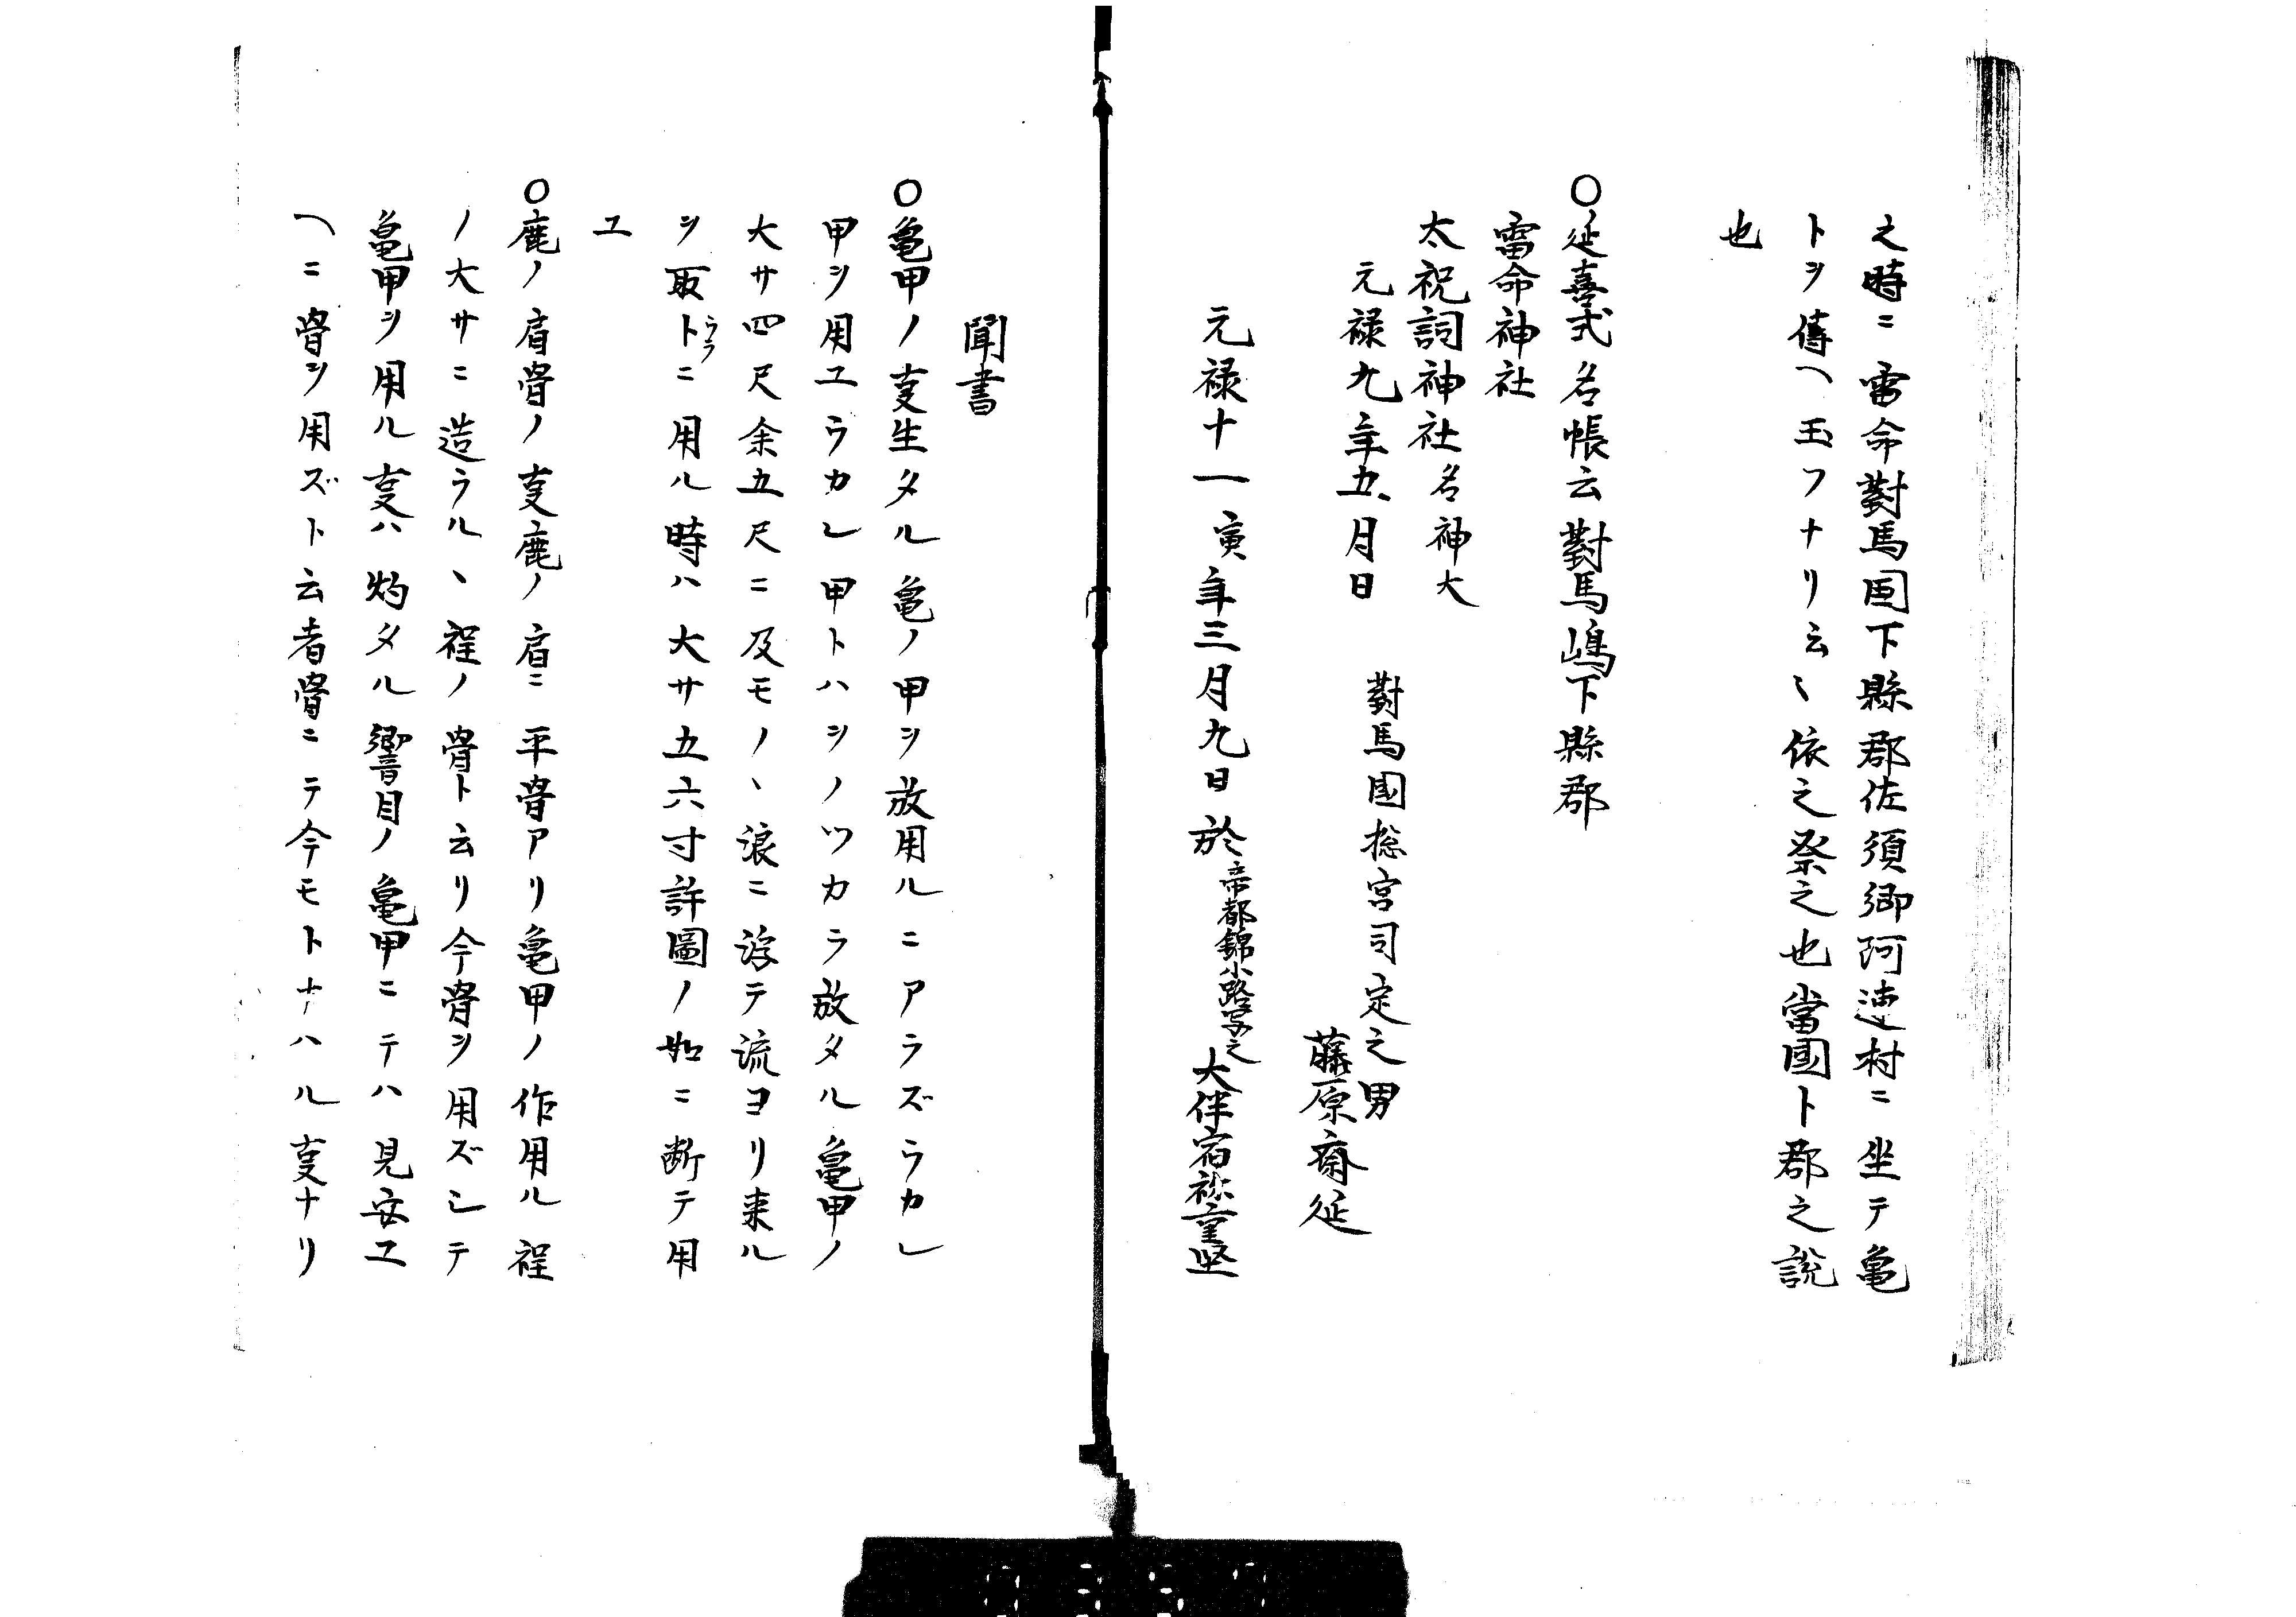 之時ニ雷命對馬国下縣郡佐須郷阿連村ニ坐テ亀
卜ヲ傳ヘ玉フナリ云〻依之祭之也當國卜郡之説
也
○延喜式名帳云對馬嶋下縣郡
雷命神社
太祝詞神社名神大
元禄九年五月日
對馬國総宮司定之男
藤原齋延
元禄十一寅年三月九日於帝都錦小路写之大伴宿祢重堅
聞書
○亀甲ノ叓生タル亀ノ甲ヲ放用ルニアラズラカレ
甲ヲ用ユラカレ甲トハヲノツカラ放タル亀甲ノ
大サ四尺余五尺ニ及モノ、浪ニ浮テ流ヨリ来ル
ヲ取卜ニ用ル時ハ大サ五六寸許圖ノ如ニ断テ用
ウラ
ユ
○鹿ノ肩骨ノ叓鹿ノ肩ニ平骨アリ亀甲ノ作用ル程
ノ大サニ造ラル、程ノ骨ト云リ今骨ヲ用ズシテ
亀甲ヲ用ル叓ハ灼タル響目ノ亀甲ニテハ見安ユ
ヘニ骨ヲ用ズト云者骨ニテ今モトナハル叓ナリ